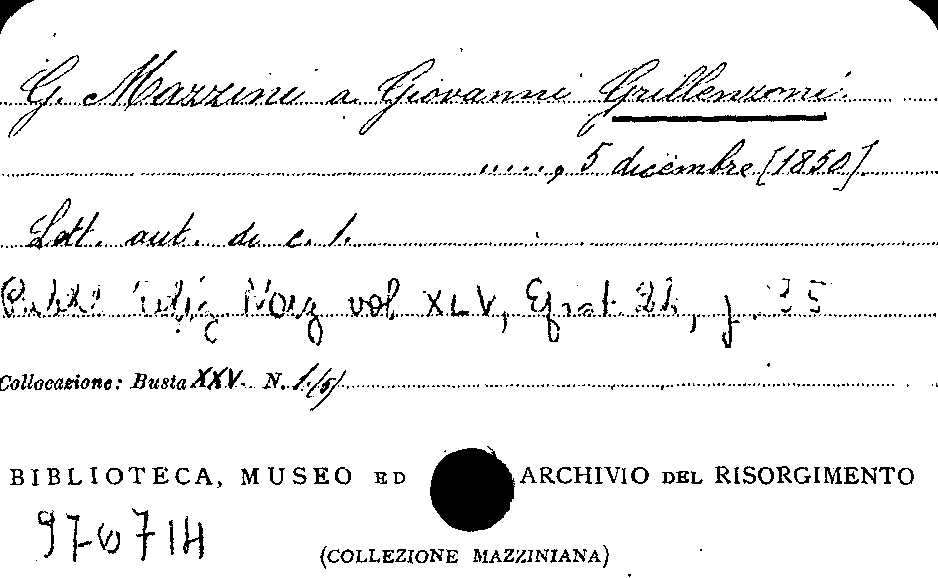 G. Mazzini a Giovanni Grillenzoni.
......, 5 dicembre [1850].
Lett. aut. di c. 1.
Naz vol XLV, Epist. 24, p. 35
Collocazione: Busta XXV N. 1/(5)
BIBLIOTECA, MUSEO ED ARCHIVIO DEL RISORGIMENTO
(COLLEZIONE MAZZINIANA)